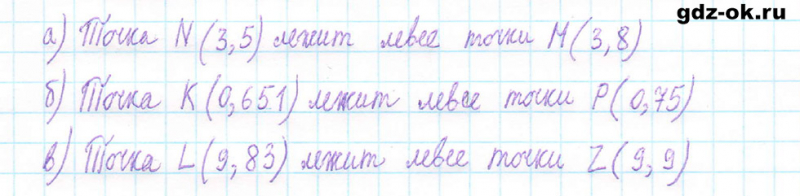 gdz-ok.ru
а) Точка N (3,5) лежит левее точки M (3,8)
б) Точка K (0,651) лежит левее точки P (0,75)
в) Точка L (9,83) лежит левее точки Z (9,9)